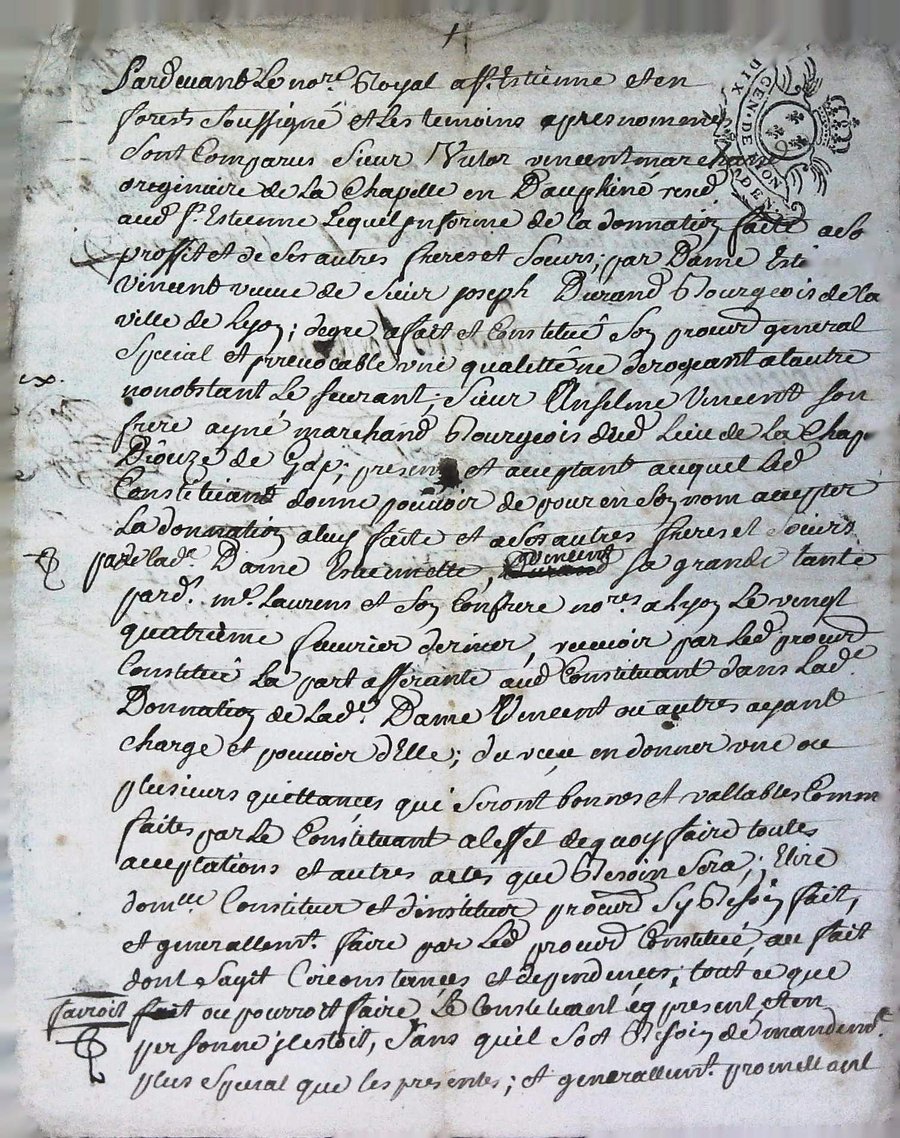 Pardevant Le nore. Royal a St. Estienne et en
forest soussigné et Les temoins apres nommés
Sont Comparus Sieur Victor vincent marchand
oreginaire de La Chapelle en Dauphiné resid
aud St. Estienne Lequel Informé de la donnation faite a so
proffit et de Ses autres freres et Soeurs; par Dame Esti
vincent veuve de Sieur joseph Durand Bourgeois de la
ville de Lyon; degré a fait et Constitué Son procurd general
Special et irrevocable une qualetté ne derogeant a lautre
nonobstant Le Seurant; Sieur Anselme Vincent son
frere ayné marchand Bourgeois dud Lieu de La Chap.
Diouze de Gap; present et aceptant auquel Led
Constituand donne pouvoir de pour en Son nom accepter
La donnation aluy faite et a Ses autres freres et Soeurs
par de lade. Dame Estiennette, vincent sa grande tante
pard. me. Laurens et Son Confrere nores a Lyon Le vingt
quatrieme feuvrier dernier, recevoir par Led procurd
Constitué La part afferante aud Constituant dans Lade
Donnation de Lade. Dame Vincent ou autres ayant
charge et pouvoir d'Elle; du recu en donner une ou
plusieurs quittances qui Seront bonnes et vallables Comm
faites par Le Constituant a leffet de quoy faire toutes
acceptations et autres actes que Besoin Sera; Elire
domclle Constituer et d'instituer procurd Sy Besoin fait,
et generallemt. faire par Led procurd Constitué, au fait
dont Sagit Circonstances et dependances; tout ce que
fairoit ou pourroit faire Le Constituant Sy present et en
personne jl estoit, Sans quil Soit Besoin de mandemt
plus Special que les presentes; et generallemt. promettant
GEN. DE LYON
DIX DEN.